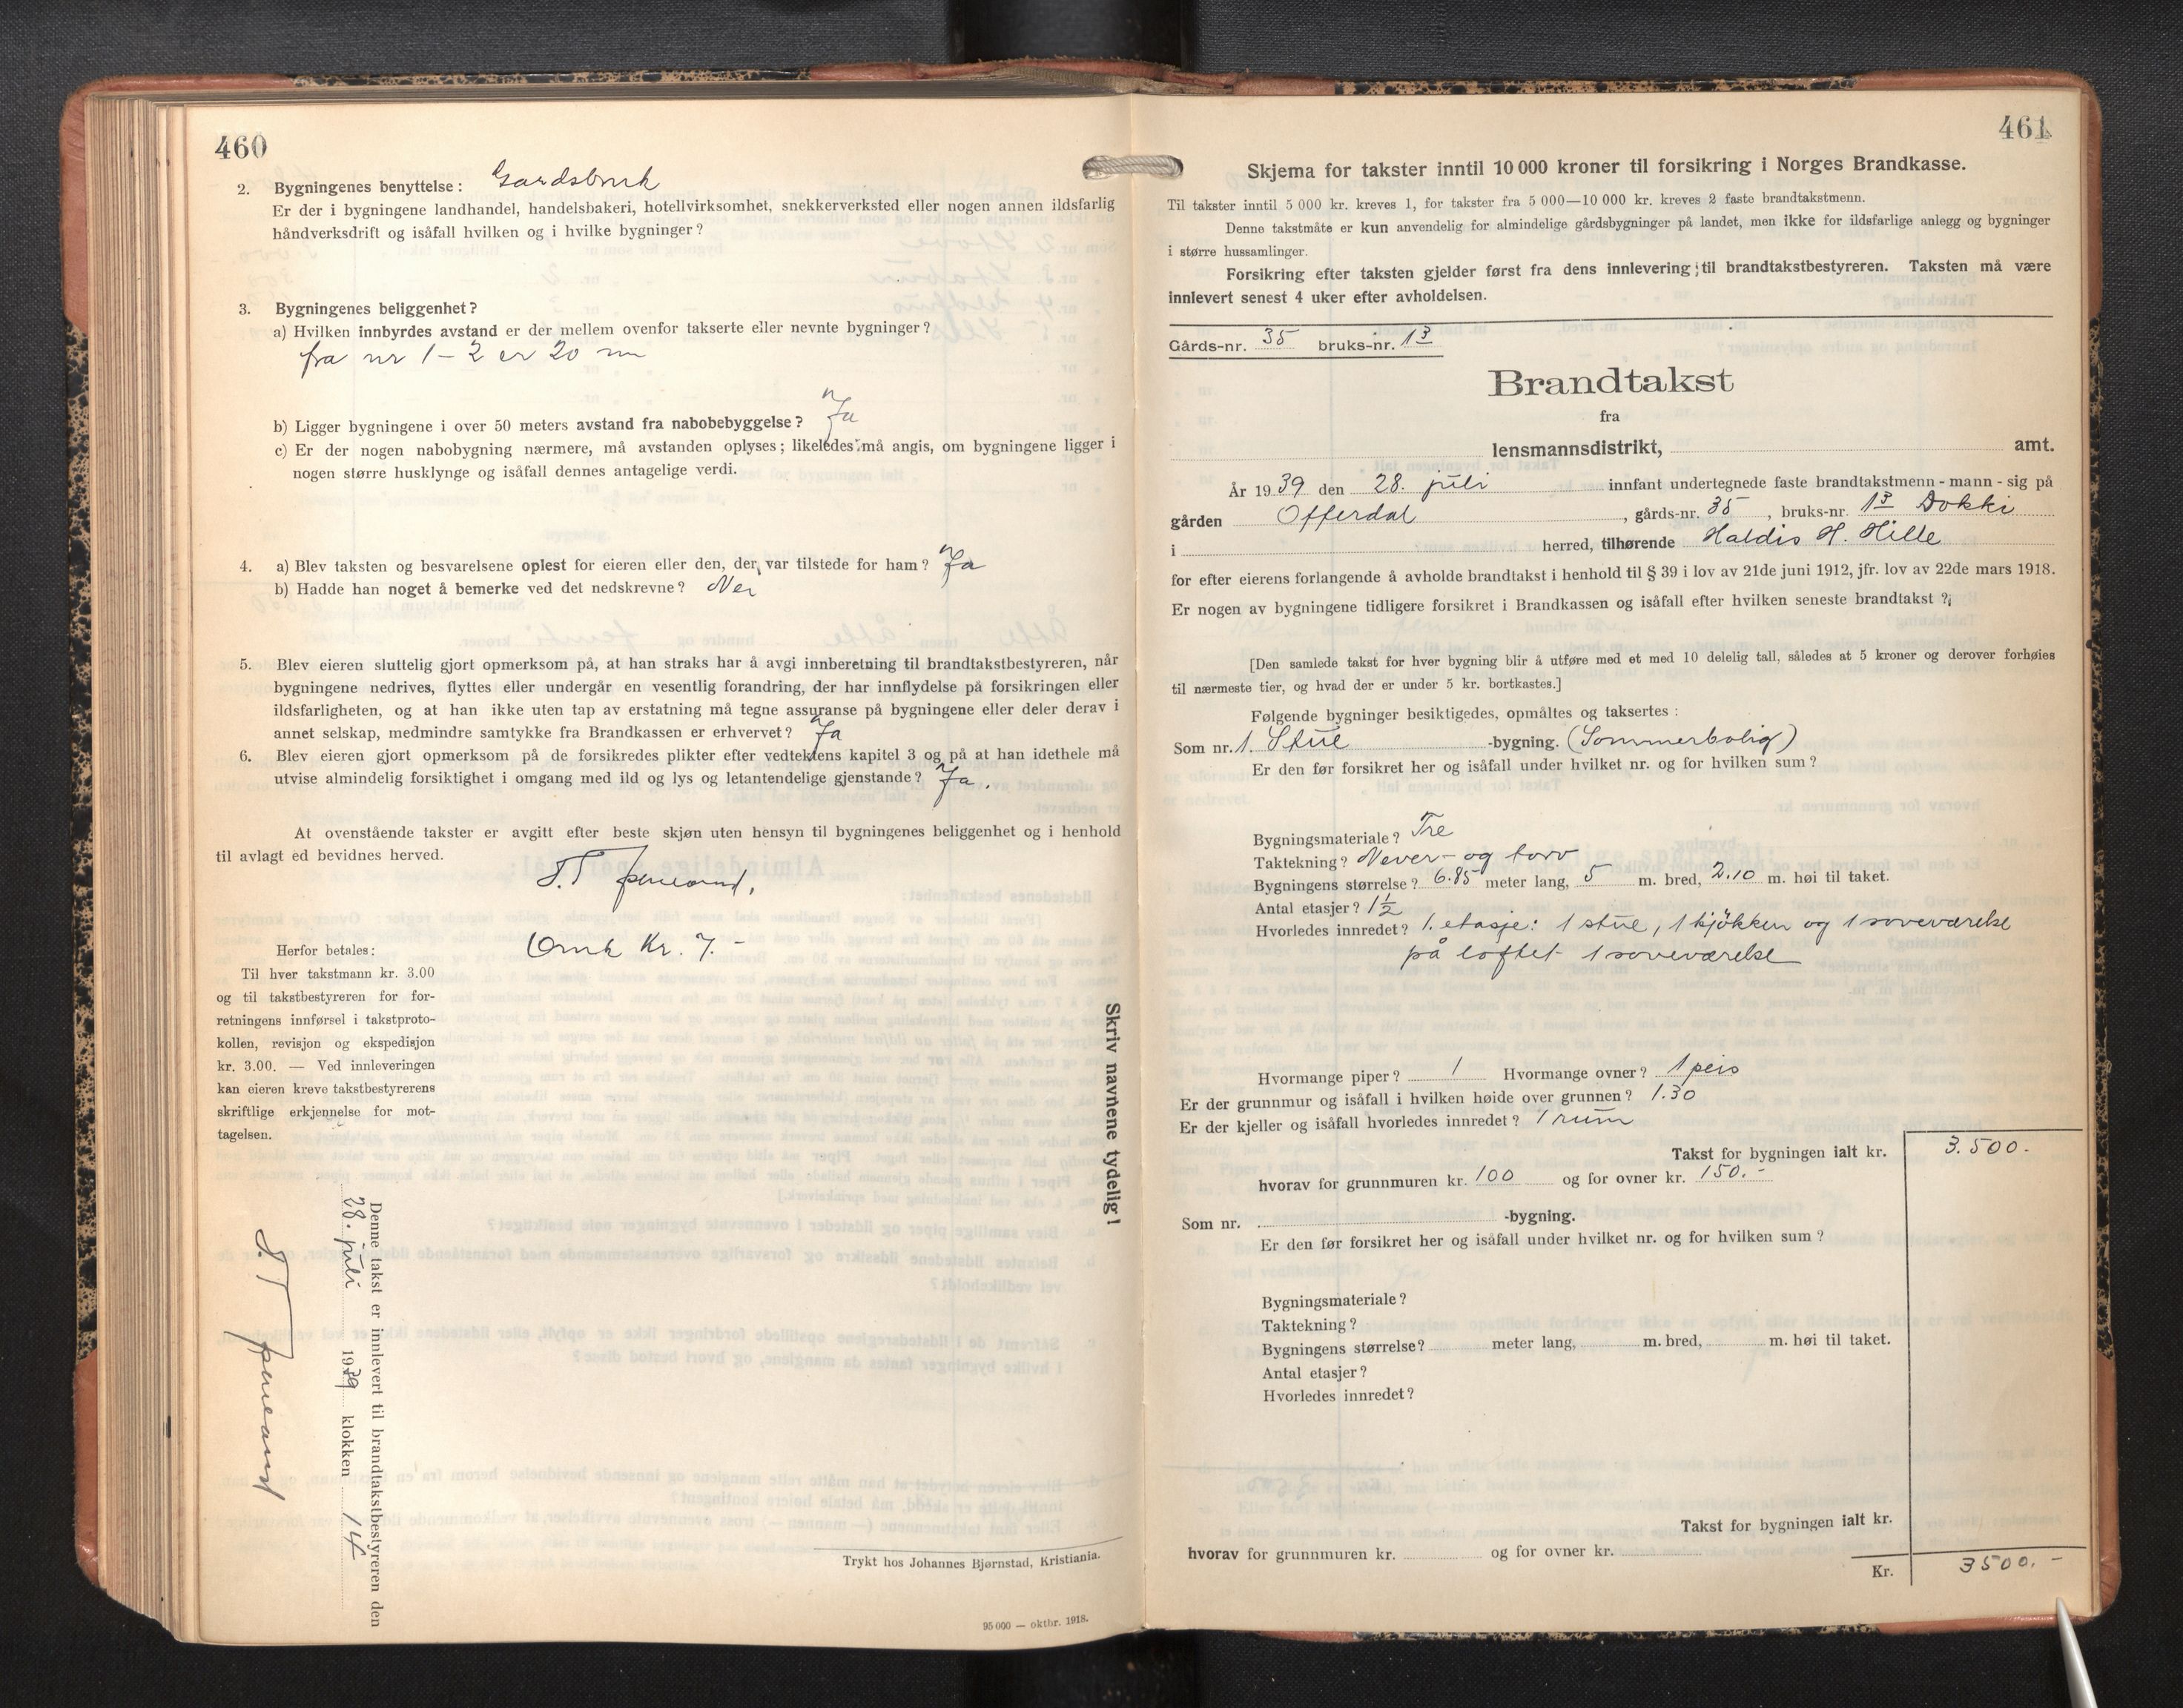 460
2. Bygningenes benyttelse: Gardsbruk
Er der i bygningene landhandel, handelsbakeri, hotellvirksomhet, snekkerverksted eller nogen annen ildsfarlig
håndverksdrift og isåfall hvilken og i hvilke bygninger?
3. Bygningenes beliggenhet?
a) Hvilken innbyrdes avstand er der mellem ovenfor takserte eller nevnte bygninger?
fra nr 1 - 2 er 20 m
b) Ligger bygningene i over 50 meters avstand fra nabobebyggelse? Ja
c) Er der nogen nabobygning nærmere, må avstanden oplyses; likeledes må angis, om bygningene ligger i
nogen større husklynge og isåfall dennes antagelige verdi.
4. a) Blev taksten og besvarelsene oplest for eieren eller den, der var tilstede for ham? Ja
b) Hadde han noget å bemerke ved det nedskrevne? Nei
5. Blev eieren sluttelig gjort opmerksom på, at han straks har å avgi innberetning til brandtakstbestyreren, når
bygningene nedrives, flyttes eller undergår en vesentlig forandring, der har innflydelse på forsikringen eller
ildsfarligheten, og at han ikke uten tap av erstatning må tegne assuranse på bygningene eller deler derav i
annet selskap, medmindre samtykke fra Brandkassen er erhvervet? Ja
6. Blev eieren gjort opmerksom på de forsikredes plikter efter vedtektens kapitel 3 og på at han idethele må
utvise almindelig forsiktighet i omgang med ild og lys og letantendelige gjenstande? Ja.
At ovenstående takster er avgitt efter beste skjøn uten hensyn til bygningenes beliggenhet og i henhold
til avlagt ed bevidnes herved.
Herfor betales:
Kr. 7.-
Til hver takstmann kr. 3.00
og til takstbestyreren for for-
retningens innførsel i takstproto-
kollen, revisjon og ekspedisjon
kr. 3.00. — Ved innleveringen
kan eieren kreve takstbestyrerens
skriftlige erkjennelse for mot-
tagelsen.
Skriv navnene tydelig!
Denne takst er innlevert til brandtakstbestyreren den
28. juli 1939 klokken 14
Trykt hos Johannes Bjørnstad, Kristiania.
95 000 — oktbr. 1918.
461
Skjema for takster inntil 10 000 kroner til forsikring i Norges Brandkasse.
Til takster inntil 5 000 kr. kreves 1, for takster fra 5 000—10 000 kr. kreves 2 faste brandtakstmenn.
Denne takstmåte er kun anvendelig for almindelige gårdsbygninger på landet, men ikke for ildsfarlige anlegg og bygninger
i større hussamlinger.
Forsikring efter taksten gjelder først fra dens innlevering til brandtakstbestyreren. Taksten må være
innlevert senest 4 uker efter avholdelsen.
Gårds-nr. 35 bruks-nr. 13
Brandtakst
fra
lensmannsdistrikt, amt.
År 1939 den 28. juli innfant undertegnede faste brandtakstmenn - mann - sig på
gården Offerdal, gårds-nr. 35, bruks-nr. 13 Dokki
i herred, tilhørende Haldis H. Hille
for efter eierens forlangende å avholde brandtakst i henhold til § 39 i lov av 21de juni 1912, jfr. lov av 22de mars 1918.
Er nogen av bygningene tidligere forsikret i Brandkassen og isåfall efter hvilken seneste brandtakst?
[Den samlede takst for hver bygning blir å utføre med et med 10 delelig tall, således at 5 kroner og derover forhøies
til nærmeste tier, og hvad der er under 5 kr. bortkastes.]
Følgende bygninger besiktigedes, opmåltes og taksertes:
Som nr. 1. Stue -bygning. (Sommerbolig)
Er den før forsikret her og isåfall under hvilket nr. og for hvilken sum?
Bygningsmateriale? Tre
Taktekning? Never- og torv
Bygningens størrelse? 6.85 meter lang, 5 m. bred, 2.10 m. høi til taket.
Antal etasjer? 1½
Hvorledes innredet? 1. etasje: 1 stue, 1 kjökken og 1 soveværelse
på loftet 1 soveværelse
Hvormange piper? 1 Hvormange ovner? 1 peis
Er der grunnmur og isåfall i hvilken høide over grunnen? 1.30
Er der kjeller og isåfall hvorledes innredet? 1 rum
Takst for bygningen ialt kr. 3.500.
hvorav for grunnmuren kr. 100 og for ovner kr. 150.-
Som nr. -bygning.
Er den før forsikret her og isåfall under hvilket nr. og for hvilken sum?
Bygningsmateriale?
Taktekning?
Bygningens størrelse? meter lang, m. bred, m. høi til taket.
Antal etasjer?
Hvorledes innredet?
Takst for bygningen ialt kr.
hvorav for grunnmuren kr. og for ovner kr.
Kr. 3500.-